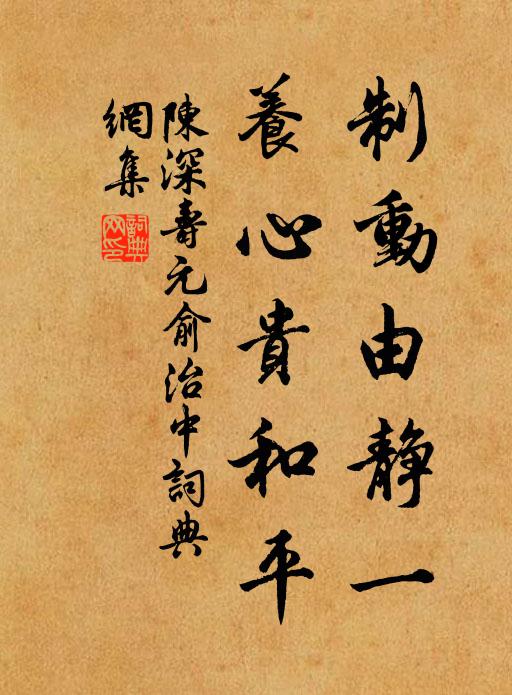 制動由靜一
養心貴和平
陳深壽元俞治中詞典
網集
詞典网印